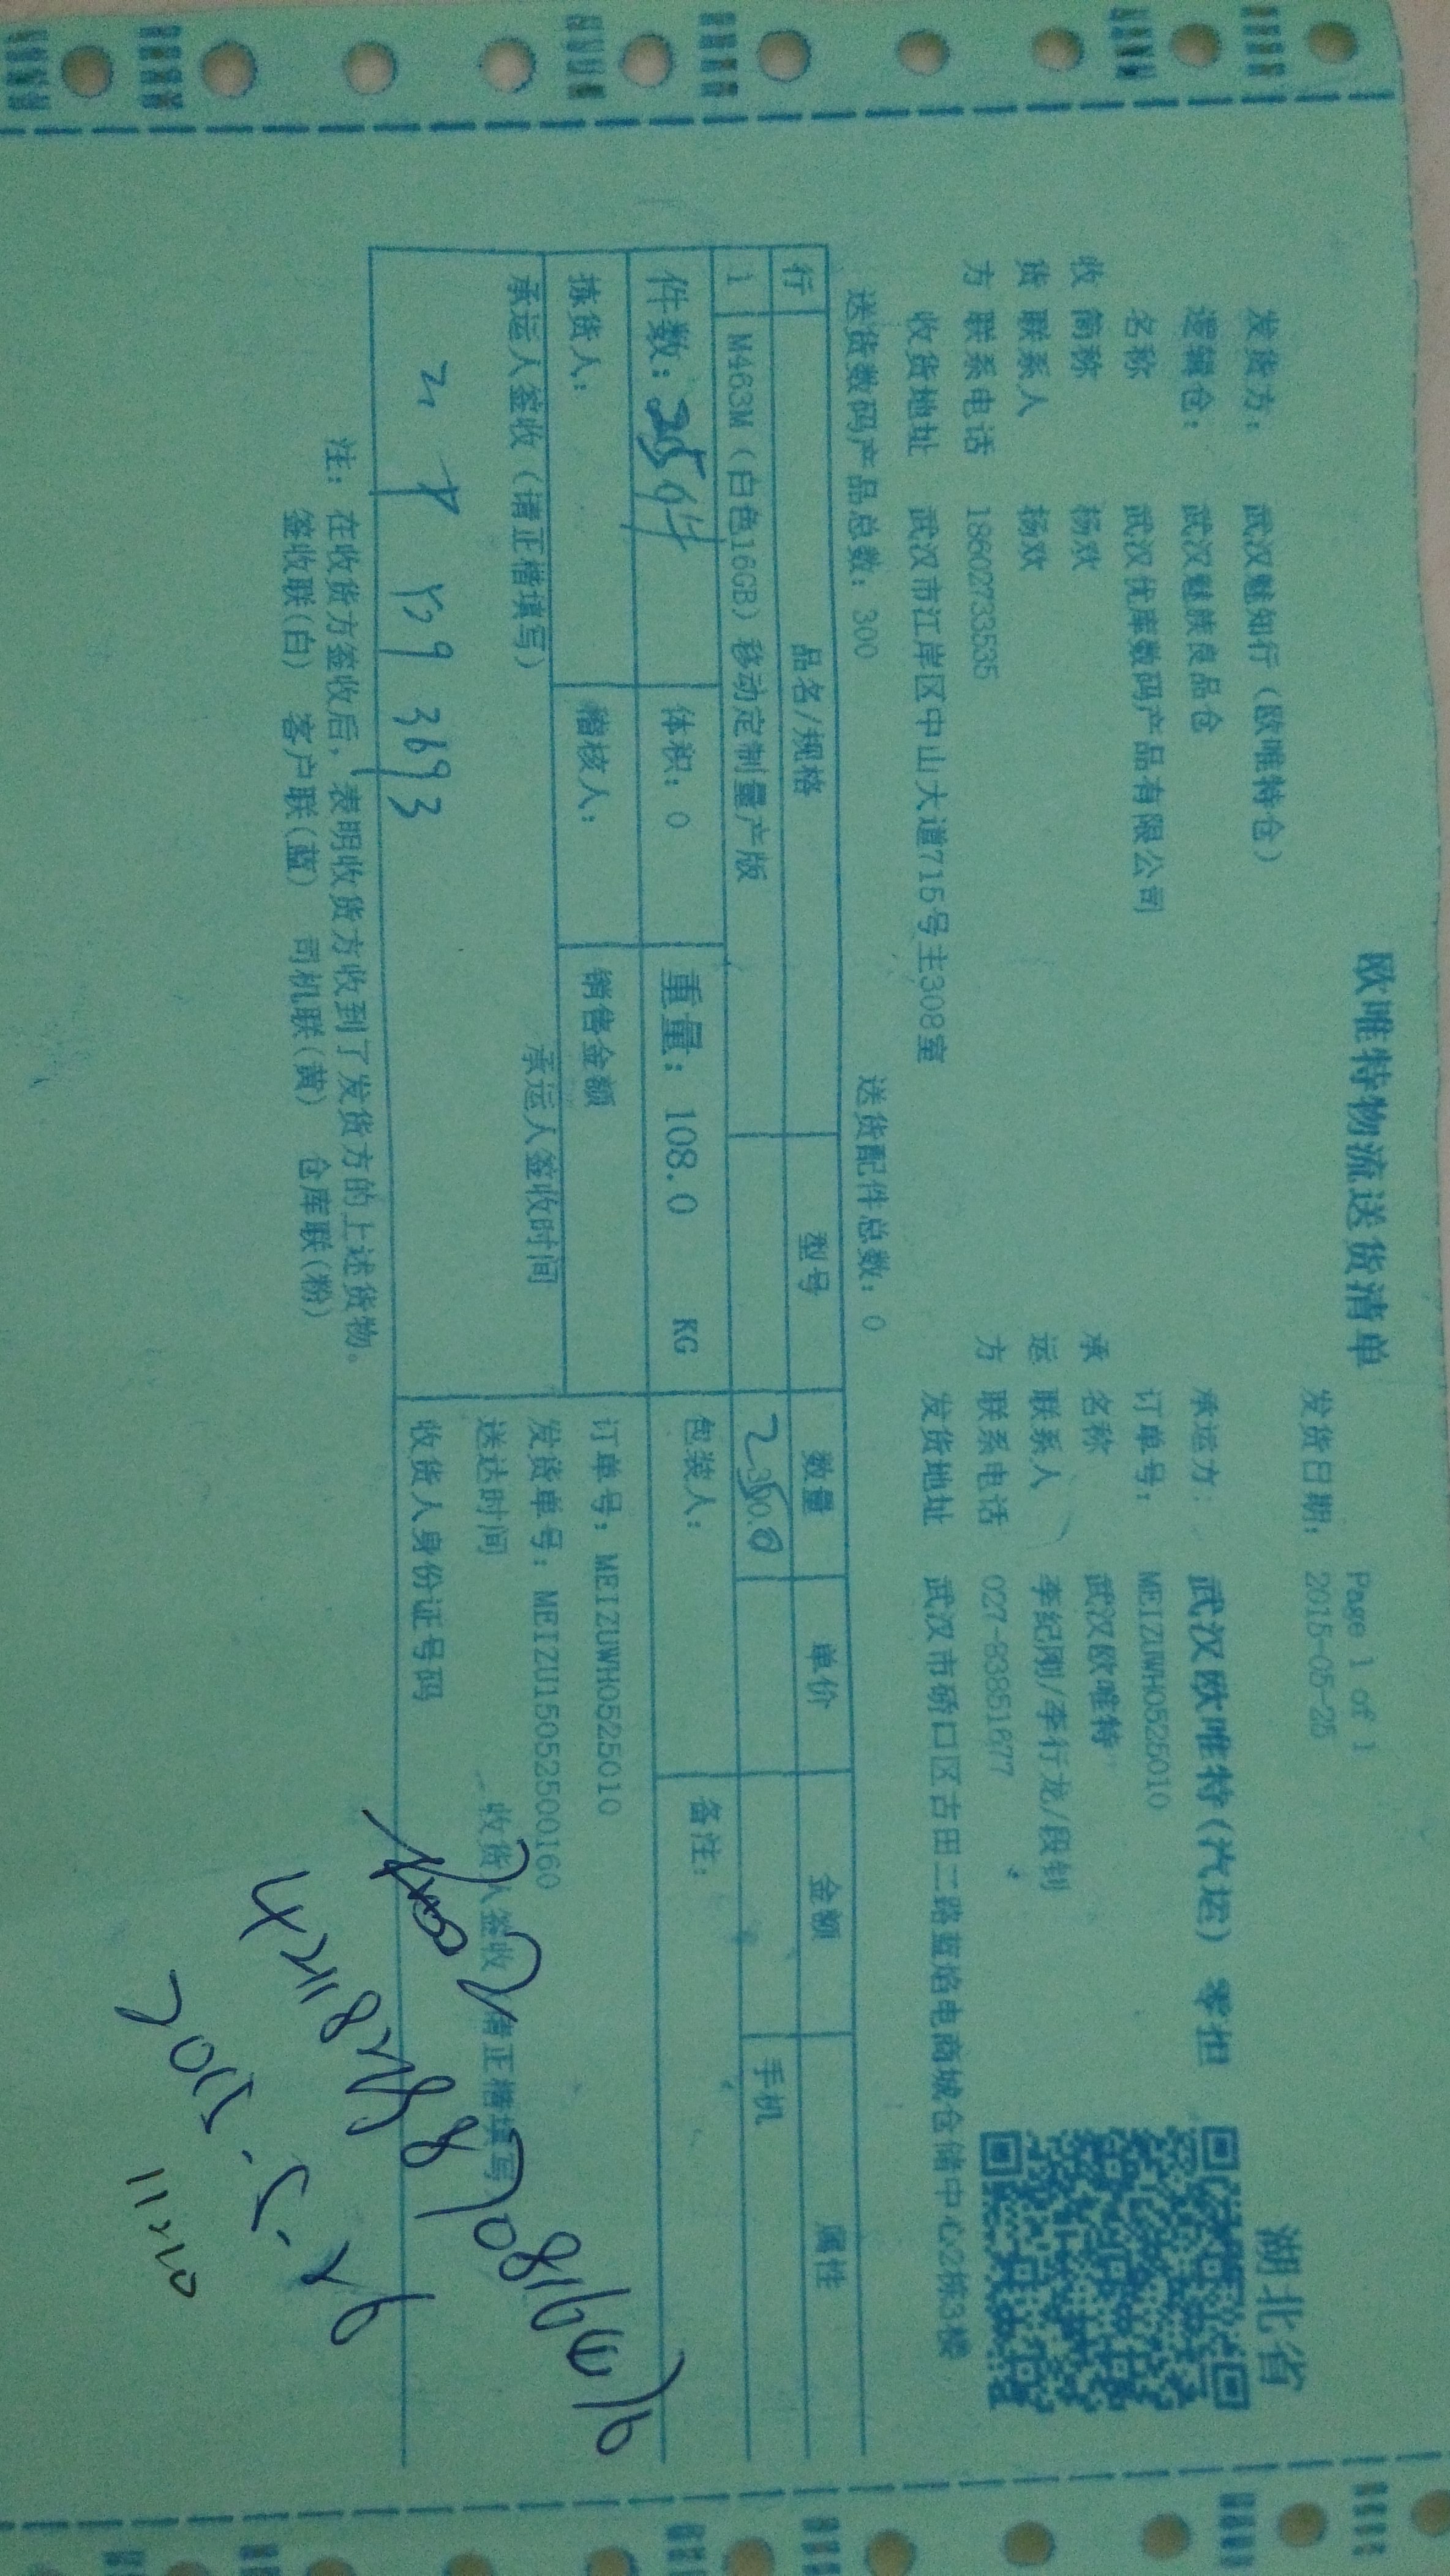 欧唯特物流送货清单
Page 1 of 1
湖北省
发货日期: 2015-05-25
发货方: 武汉魅知行(欧唯特仓)
承运方: 武汉欧唯特(汽运) 零担
逻辑仓: 武汉魅族良品仓
订单号: MEIZUWH0525010
名称 武汉优库数码产品有限公司
承 名称 武汉欧唯特
收 简称 杨欢
运 联系人 李纪刚/李行龙/段钊
货 联系人 杨欢
方 联系电话 027-83851677
方 联系电话 18602733535
发货地址 武汉市硚口区古田二路蓝焰电商城仓储中心2栋3楼
收货地址 武汉市江岸区中山大道715号主308室
送货数码产品总数: 300 送货配件总数: 0
行 品名/规格 型号 数量 单价 金额 属性
1 M463M(白色16GB)移动定制量产版 手机
件数: 25件 体积: 0 重量: 108.0 KG 包装人: 备注:
拣货人: 稽核人: 销售金额 订单号: MEIZUWH0525010
发货单号: MEIZU15052500160
承运人签收(请正楷填写) 承运人签收时间 送达时间 收货人签收(请正楷填写
收货人身份证号码
3693
注: 在收货方签收后,表明收货方收到了发货方的上述货物。
签收联(白) 客户联(蓝) 司机联(黄) 仓库联(粉)